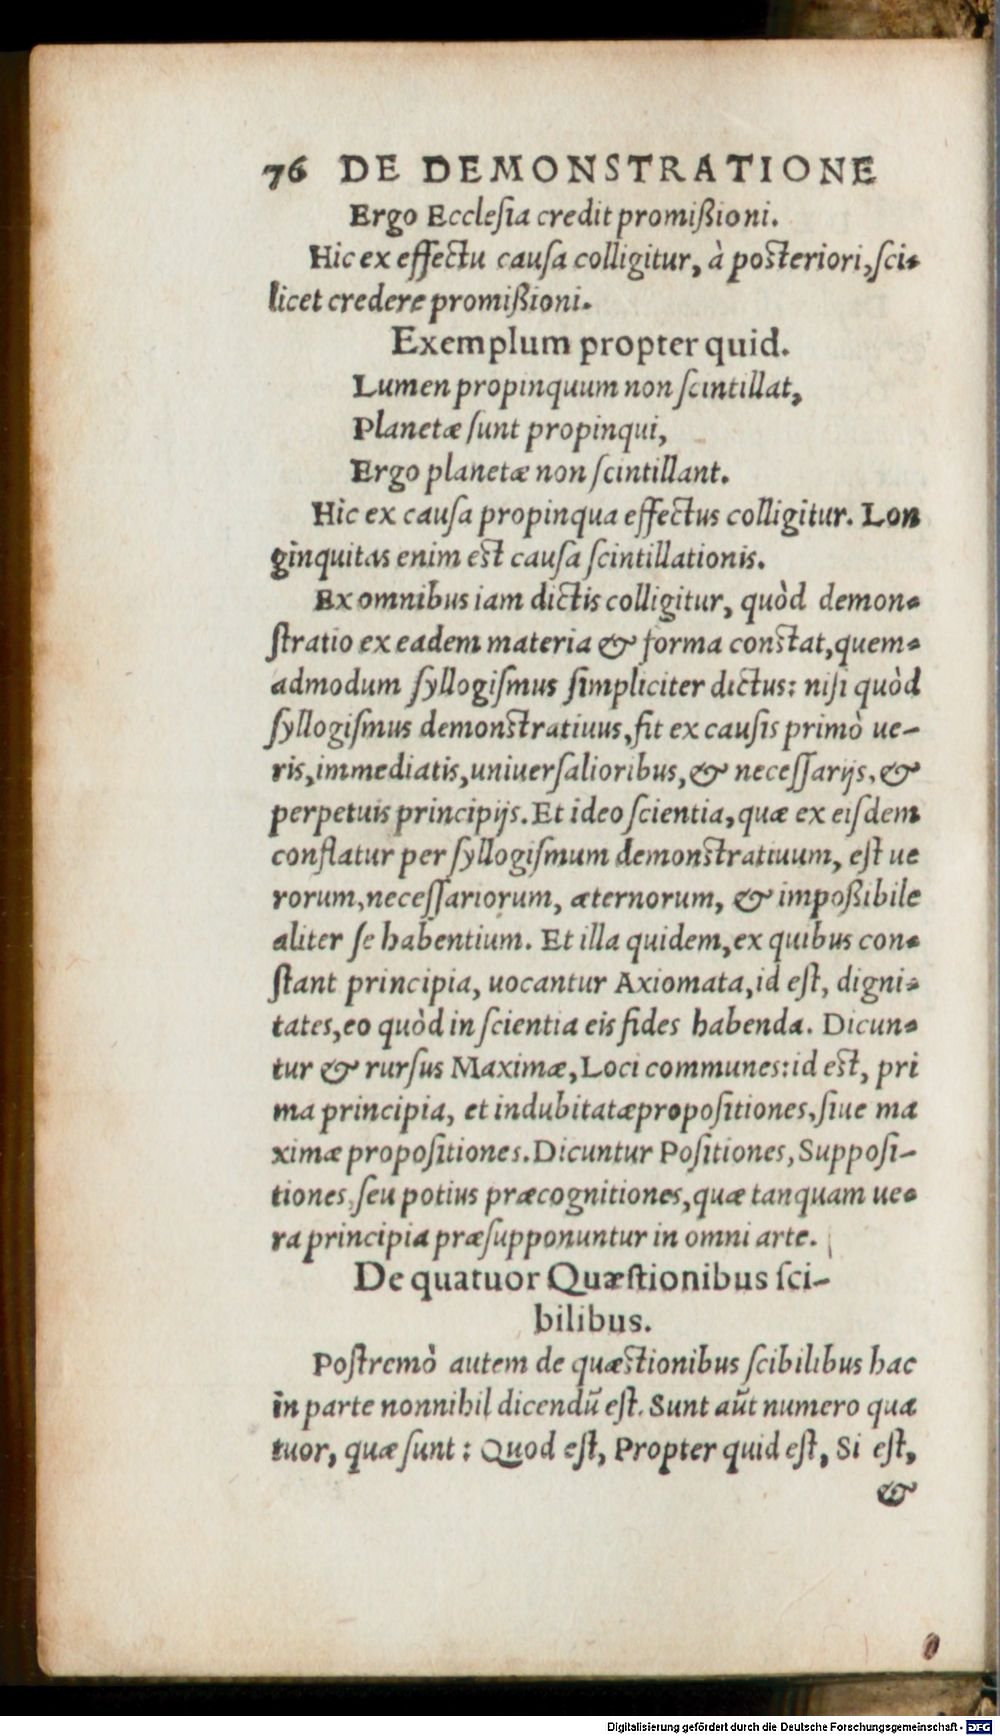 76 DE DEMONSTRATIONE
Ergo Eccleſia credit promißioni.
Hic ex effectu cauſa colligitur, à poſteriori, ſci-
licet credere promißioni.
Exemplum propter quid.
Lumen propinquum non ſcintillat,
Planetæ ſunt propinqui,
Ergo planetæ non ſcintillant.
Hic ex cauſa propinqua effectus colligitur. Lon
ginquitas enim eſt cauſa ſcintillationis.
Ex omnibus iam dictis colligitur, quòd demon-
ſtratio ex eadem materia & forma conſtat, quem-
admodum ſyllogiſmus ſimpliciter dictus: niſi quòd
ſyllogiſmus demonſtratiuus, fit ex cauſis primò ue-
ris, immediatis, uniuerſalioribus, & neceſſarijs, &
perpetuis principijs. Et ideo ſcientia, quæ ex eiſdem
conflatur per ſyllogiſmum demonſtratiuum, eſt ue
rorum, neceſſariorum, æternorum, & impoßibile
aliter ſe habentium. Et illa quidem, ex quibus con-
ſtant principia, uocantur Axiomata, id eſt, digni-
tates, eo quòd in ſcientia eis fides habenda. Dicun-
tur & rurſus Maximæ, Loci communes: id eſt, pri
ma principia, et indubitatæ propoſitiones, ſiue ma
ximæ propoſitiones. Dicuntur Poſitiones, Suppoſi-
tiones, ſeu potius præcognitiones, quæ tanquam ue-
ra principia præſupponuntur in omni arte.
De quatuor Quæſtionibus ſci-
bilibus.
Poſtremò autem de quæſtionibus ſcibilibus hac
in parte nonnihil dicendū eſt. Sunt aūt numero qua
tuor, quæ ſunt: Quod eſt, Propter quid eſt, Si eſt,
&
Digitalisierung gefördert durch die Deutsche Forschungsgemeinschaft - DFG